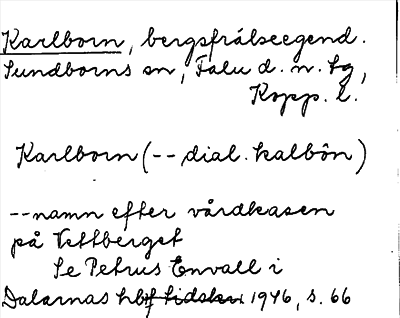 Karlborn, bergsfrälseegend.
Sundborns sn, Falu d. n. tg,
Kopp. l.
Karlborn (-- dial. kalbôn)
-- namn efter vårdkasen
på Vettberget
Se Petrus Envall i
Dalarnas hbf tidskr. 1946, s. 66